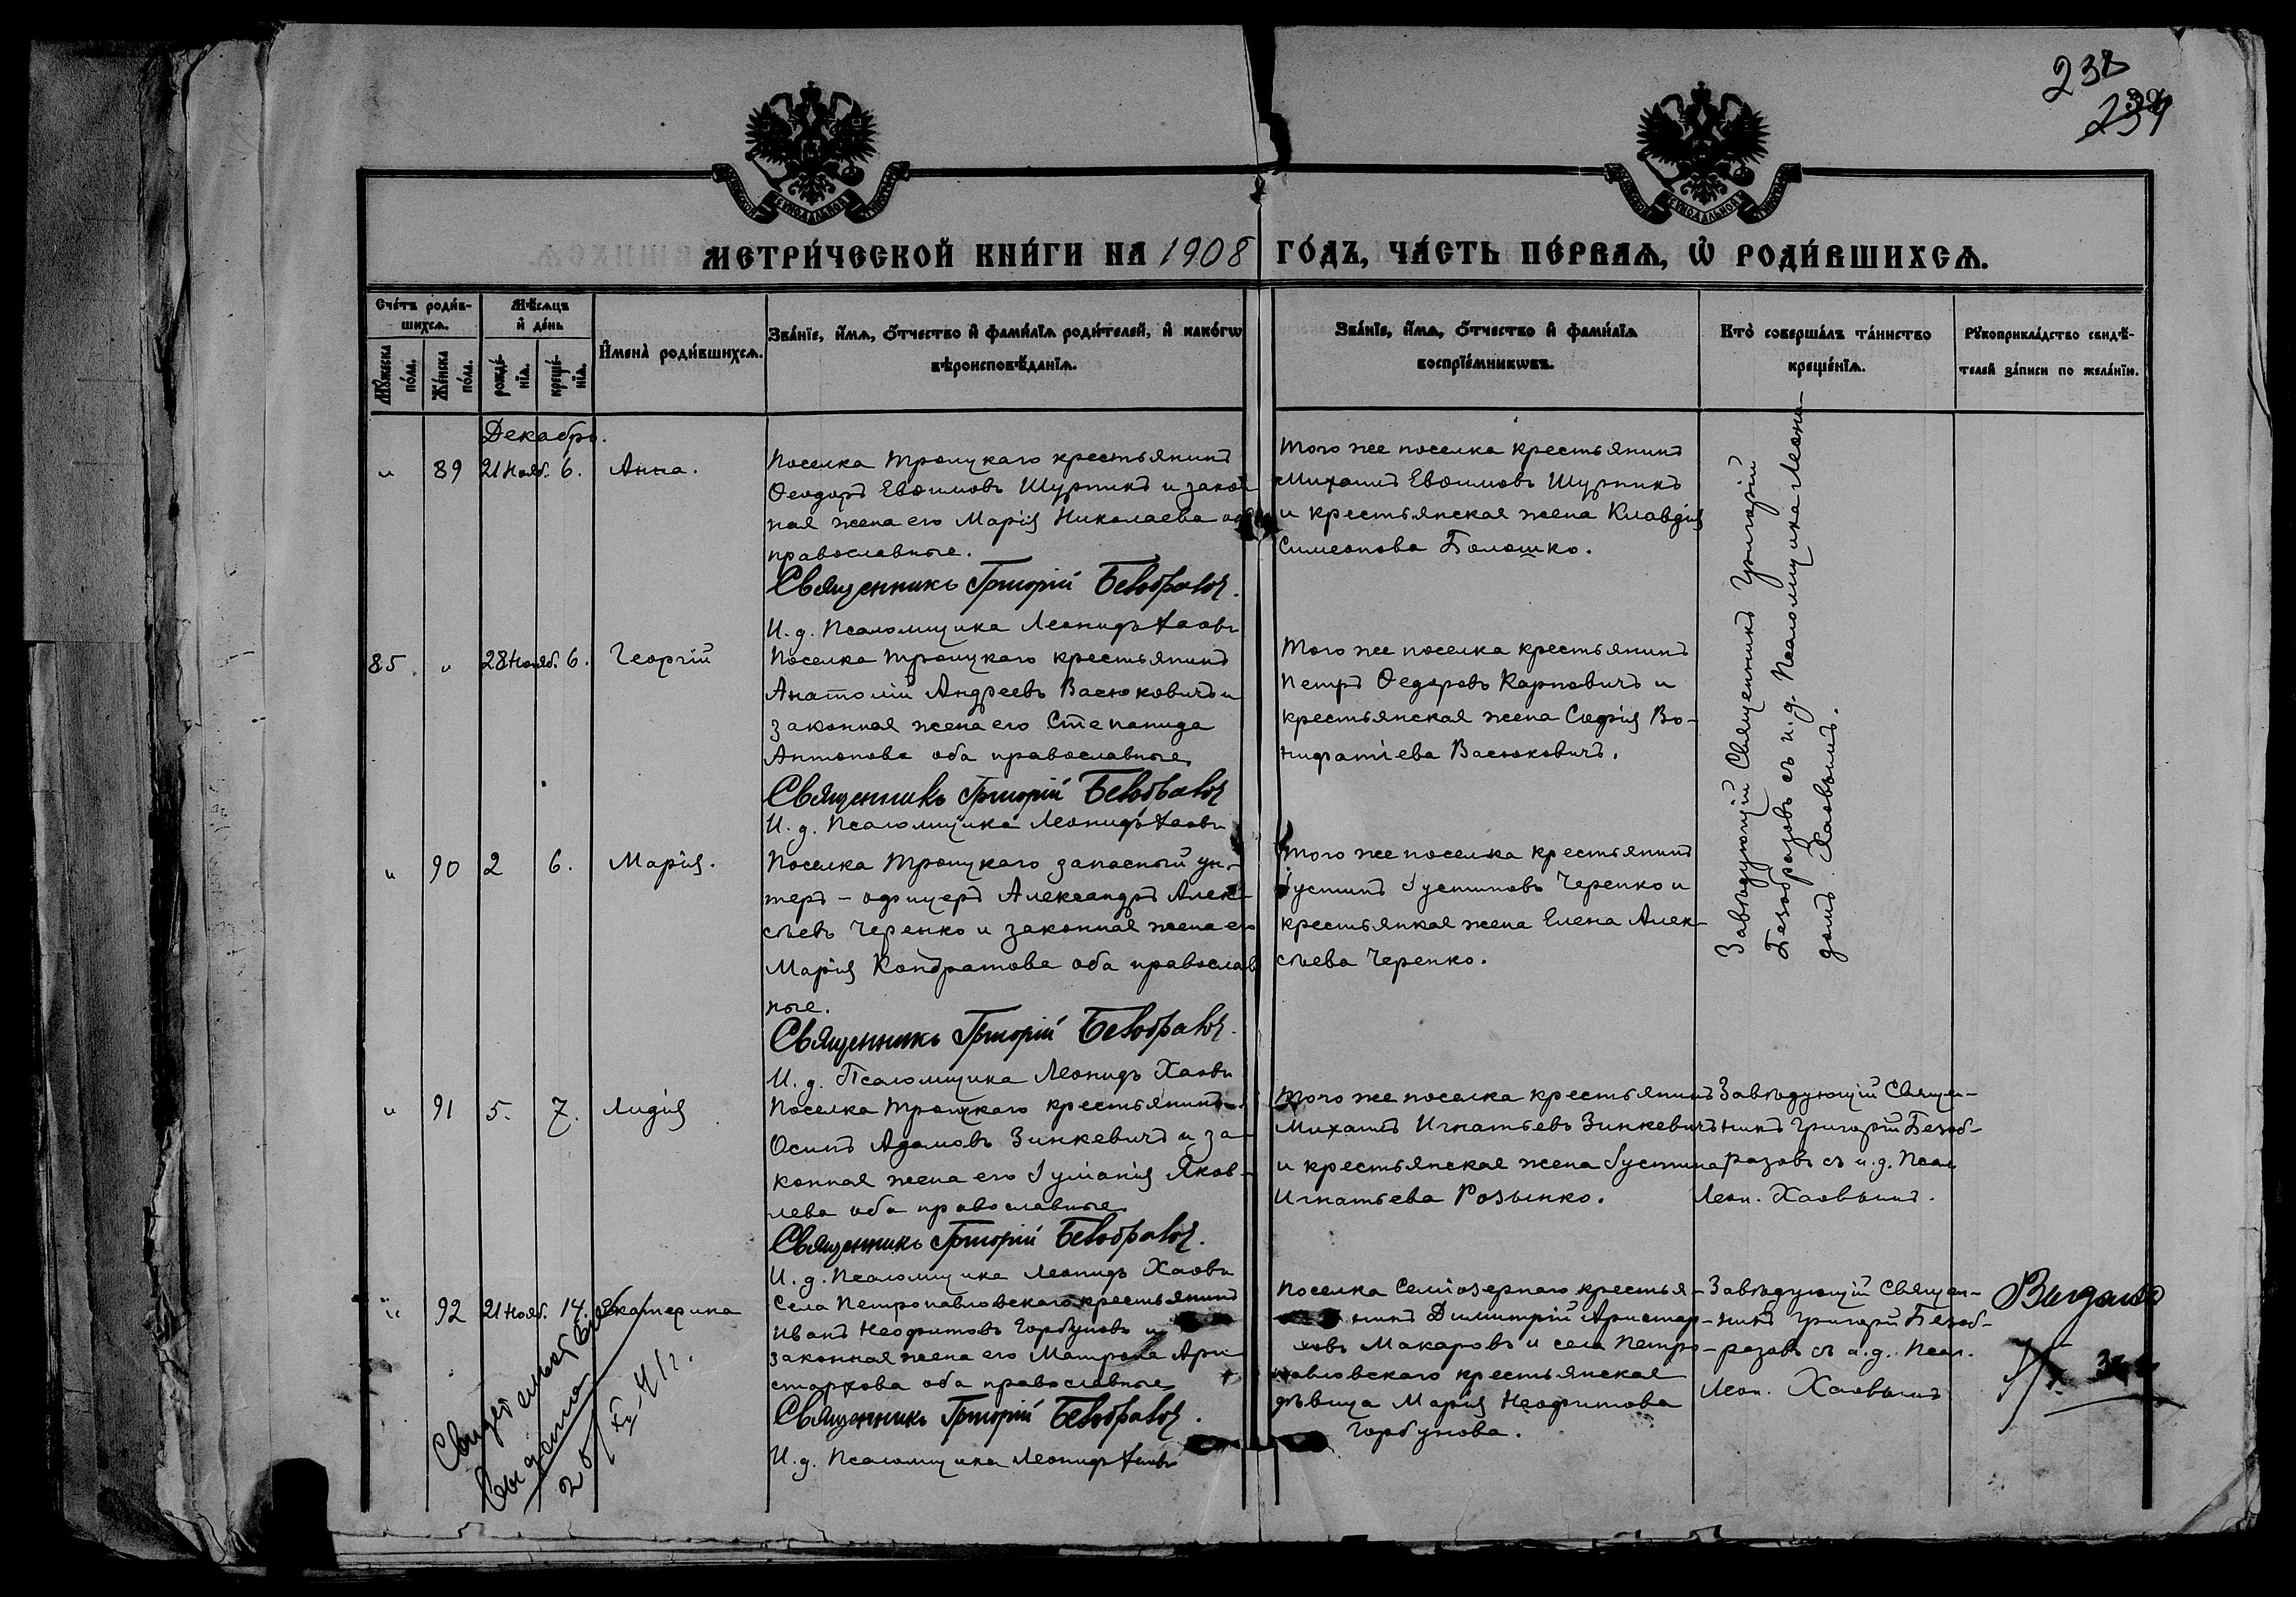 238
239
МЕТРИ́ЧЕСКОЙ КНИ́ГИ НА 1908 ГО́ДЪ, ЧА́СТЬ ПЕ́РВАѦ, Ѡ҆ РОДИ́ВШИХСѦ.
Сче́тъ роди́в-
шихсѧ.
Мѣ́сѧцъ
и҆ де́нь
Мꙋ́жеска по́ла.
Же́нска по́ла.
рожде́-нїѧ.
креще́-нїѧ.
И҆мена̀ роди́вшихсѧ.
Зва́нїе, и҆́мѧ, ѻ҆́тчество и҆ фами́лїѧ роди́телей, и҆ како́гѡ
вѣроисповѣ́данїѧ.
Зва́нїе, и҆́мѧ, ѻ҆́тчество и҆ фами́лїѧ
воспрїе́мникѡвъ.
Кто̀ соверша́лъ та́инство
креще́нїѧ.
Рꙋкоприкла́дство свидѣ́-
телей за́писи по жела́нїю.
Декабрь.
" 89 21 Нояб. 6. Анна.
Поселка Троицкаго крестьянинъ
Ѳеодоръ Евѳимовъ Шурпикъ и закон
ная жена его Марія Николаева оба
православные.
Священникъ Григорій Безобразов.
И. д. Псаломщика Леонидъ Хаов
Того же поселка крестьянинъ
Михаилъ Евѳимовъ Шурпикъ
и крестьянская жена Клавдія
Симеонова Болошко.
Завѣдующій Священникъ Григорій
Безобразовъ съ и. д. Псаломщика Леони-
домъ Хаовымъ.
85 " 28 Нояб. 6. Георгій
Поселка Троицкаго крестьянинъ
Анатолій Андреевъ Васюковичъ и
законная жена его Степанида
Антонова оба православные
Священникъ Григорій Безобразов
И. д. Псаломщика Леонидъ Хаов
Того же поселка крестьянинъ
Петръ Ѳедоровъ Карповичъ и
крестьянская жена Софія Во-
нифатіева Васюковичъ.
" 90 2 6. Марія.
Поселка Троицкаго запасный ун-
теръ-офицеръ Александръ Алек-
сѣевъ Черенко и законная жена его
Марія Кондратова оба православ
ные.
Священникъ Григорій Безобразов.
И. д. Псаломщика Леонидъ Хаов
Того же поселка крестьянинъ
Іустинъ Іустиновъ Черенко и
крестьянкая жена Елена Алек-
сѣева Черенко.
" 91 5. 7. Лидія
Поселка Троицкаго крестьянинъ
Осипъ Адамовъ Зинкевичъ и за-
конная жена его Іуліанія Яков-
лева оба православные.
Священникъ Григорій Безобразов.
И. д. Псаломщика Леонидъ Хаов
Того же поселка крестьянинъ
Михаилъ Игнатьевъ Зинкевичъ
и крестьянская жена Іустина
Игнатьева Розынко.
Завѣдующій Священ-
никъ Григорій Безоб-
разовъ съ и. д. Псал
Леон. Хаовымъ.
" 92 21 Нояб. 14. Екатерина
Села Петропавловскаго крестьянинъ
Иванъ Неофитовъ Горбуновъ и
законная жена его Матрона Ари-
стархова оба православные
Священникъ Григорій Безобразов.
И. д. Псаломщика Леонидъ Хаов
Поселка Семіозернаго крестья-
нинъ Димитрій Аристар-
ховъ Макаровъ и села Петро-
павловскаго крестьянская
дѣвица Марія Неофитова
Горбунова.
Завѣдующій Священ-
никъ Григорій Безоб-
разовъ съ и. д. Псал.
Леон. Хаовымъ
Свидетельство
Выдано